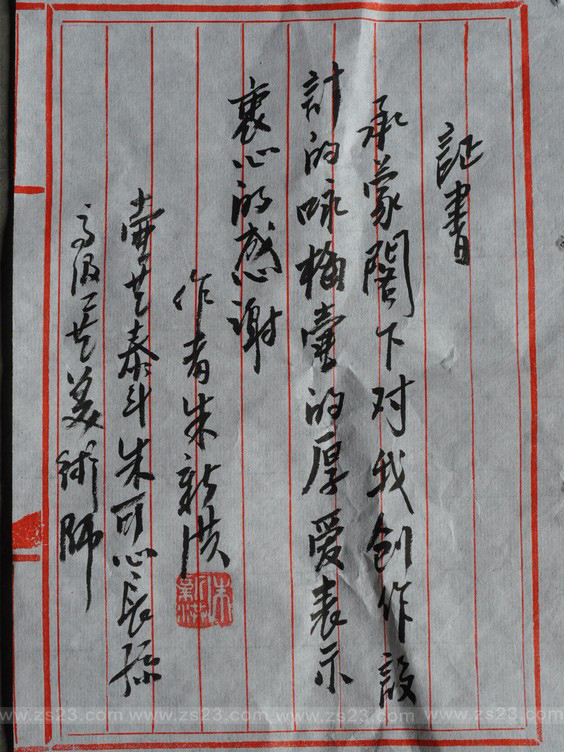 証書
承蒙閣下对我创作設
計的咏梅壶的厚爱表示
衷心的感謝
作者朱新洪
壶艺泰斗朱可心長孫
高级工艺美術師
朱新洪
www.zs23.com www.zs23.com www.zs23.com www.zs23.com